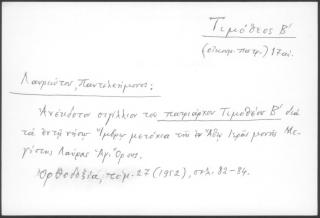 Τιμόθεος Β'
(οίκουμ. πατρ.) 17 αἰ.
Λαυριώτου, Παντελεήμονος:
Ἀνέκδοτα σιγίλλιον τοῦ πατριάρχου Τιμοθέου Β' διὰ
τὰ ἐν τῇ νήσῳ Ἴμβρῳ μετόχια τῆς ἐν Ἄθῳ Ἱερᾶς μονῆς Με-
γίστης Λαύρας Ἁγί. Ὄρους.
Ὀρθοδοξία, τόμ. 27 (1952), σελ. 82-84.